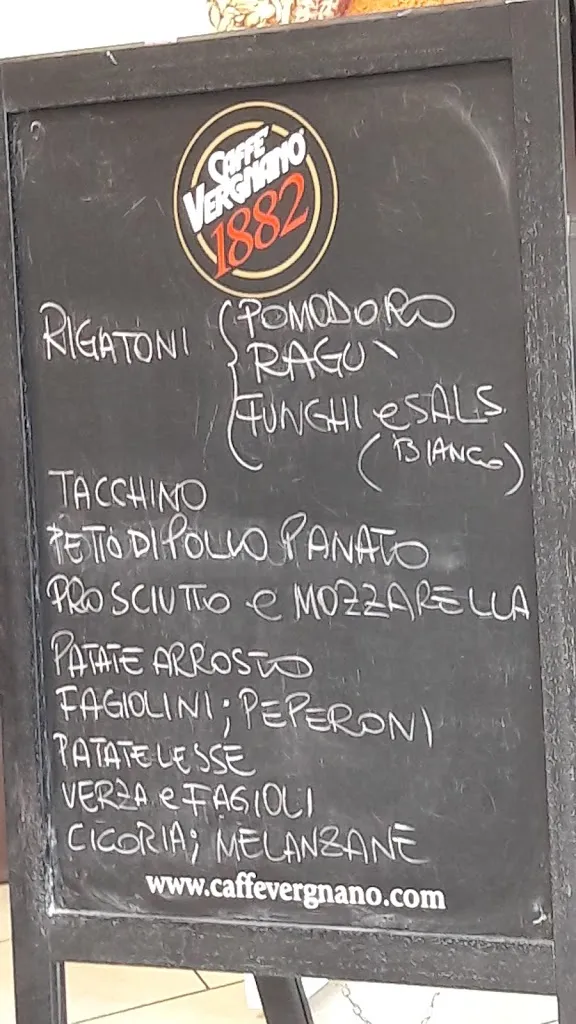 CAFFÈ
VERGNANO
1882
RIGATONI { POMODORO
RAGU`
FUNGHI e SALS.
(BIANCO)
TACCHINO
PETTO DI POLLO PANATO
PROSCIUTTO e MOZZARELLA
PATATE ARROSTO
FAGIOLINI; PEPERONI
PATATE LESSE
VERZA e FAGIOLI
CICORIA; MELANZANE
www.caffevergnano.com